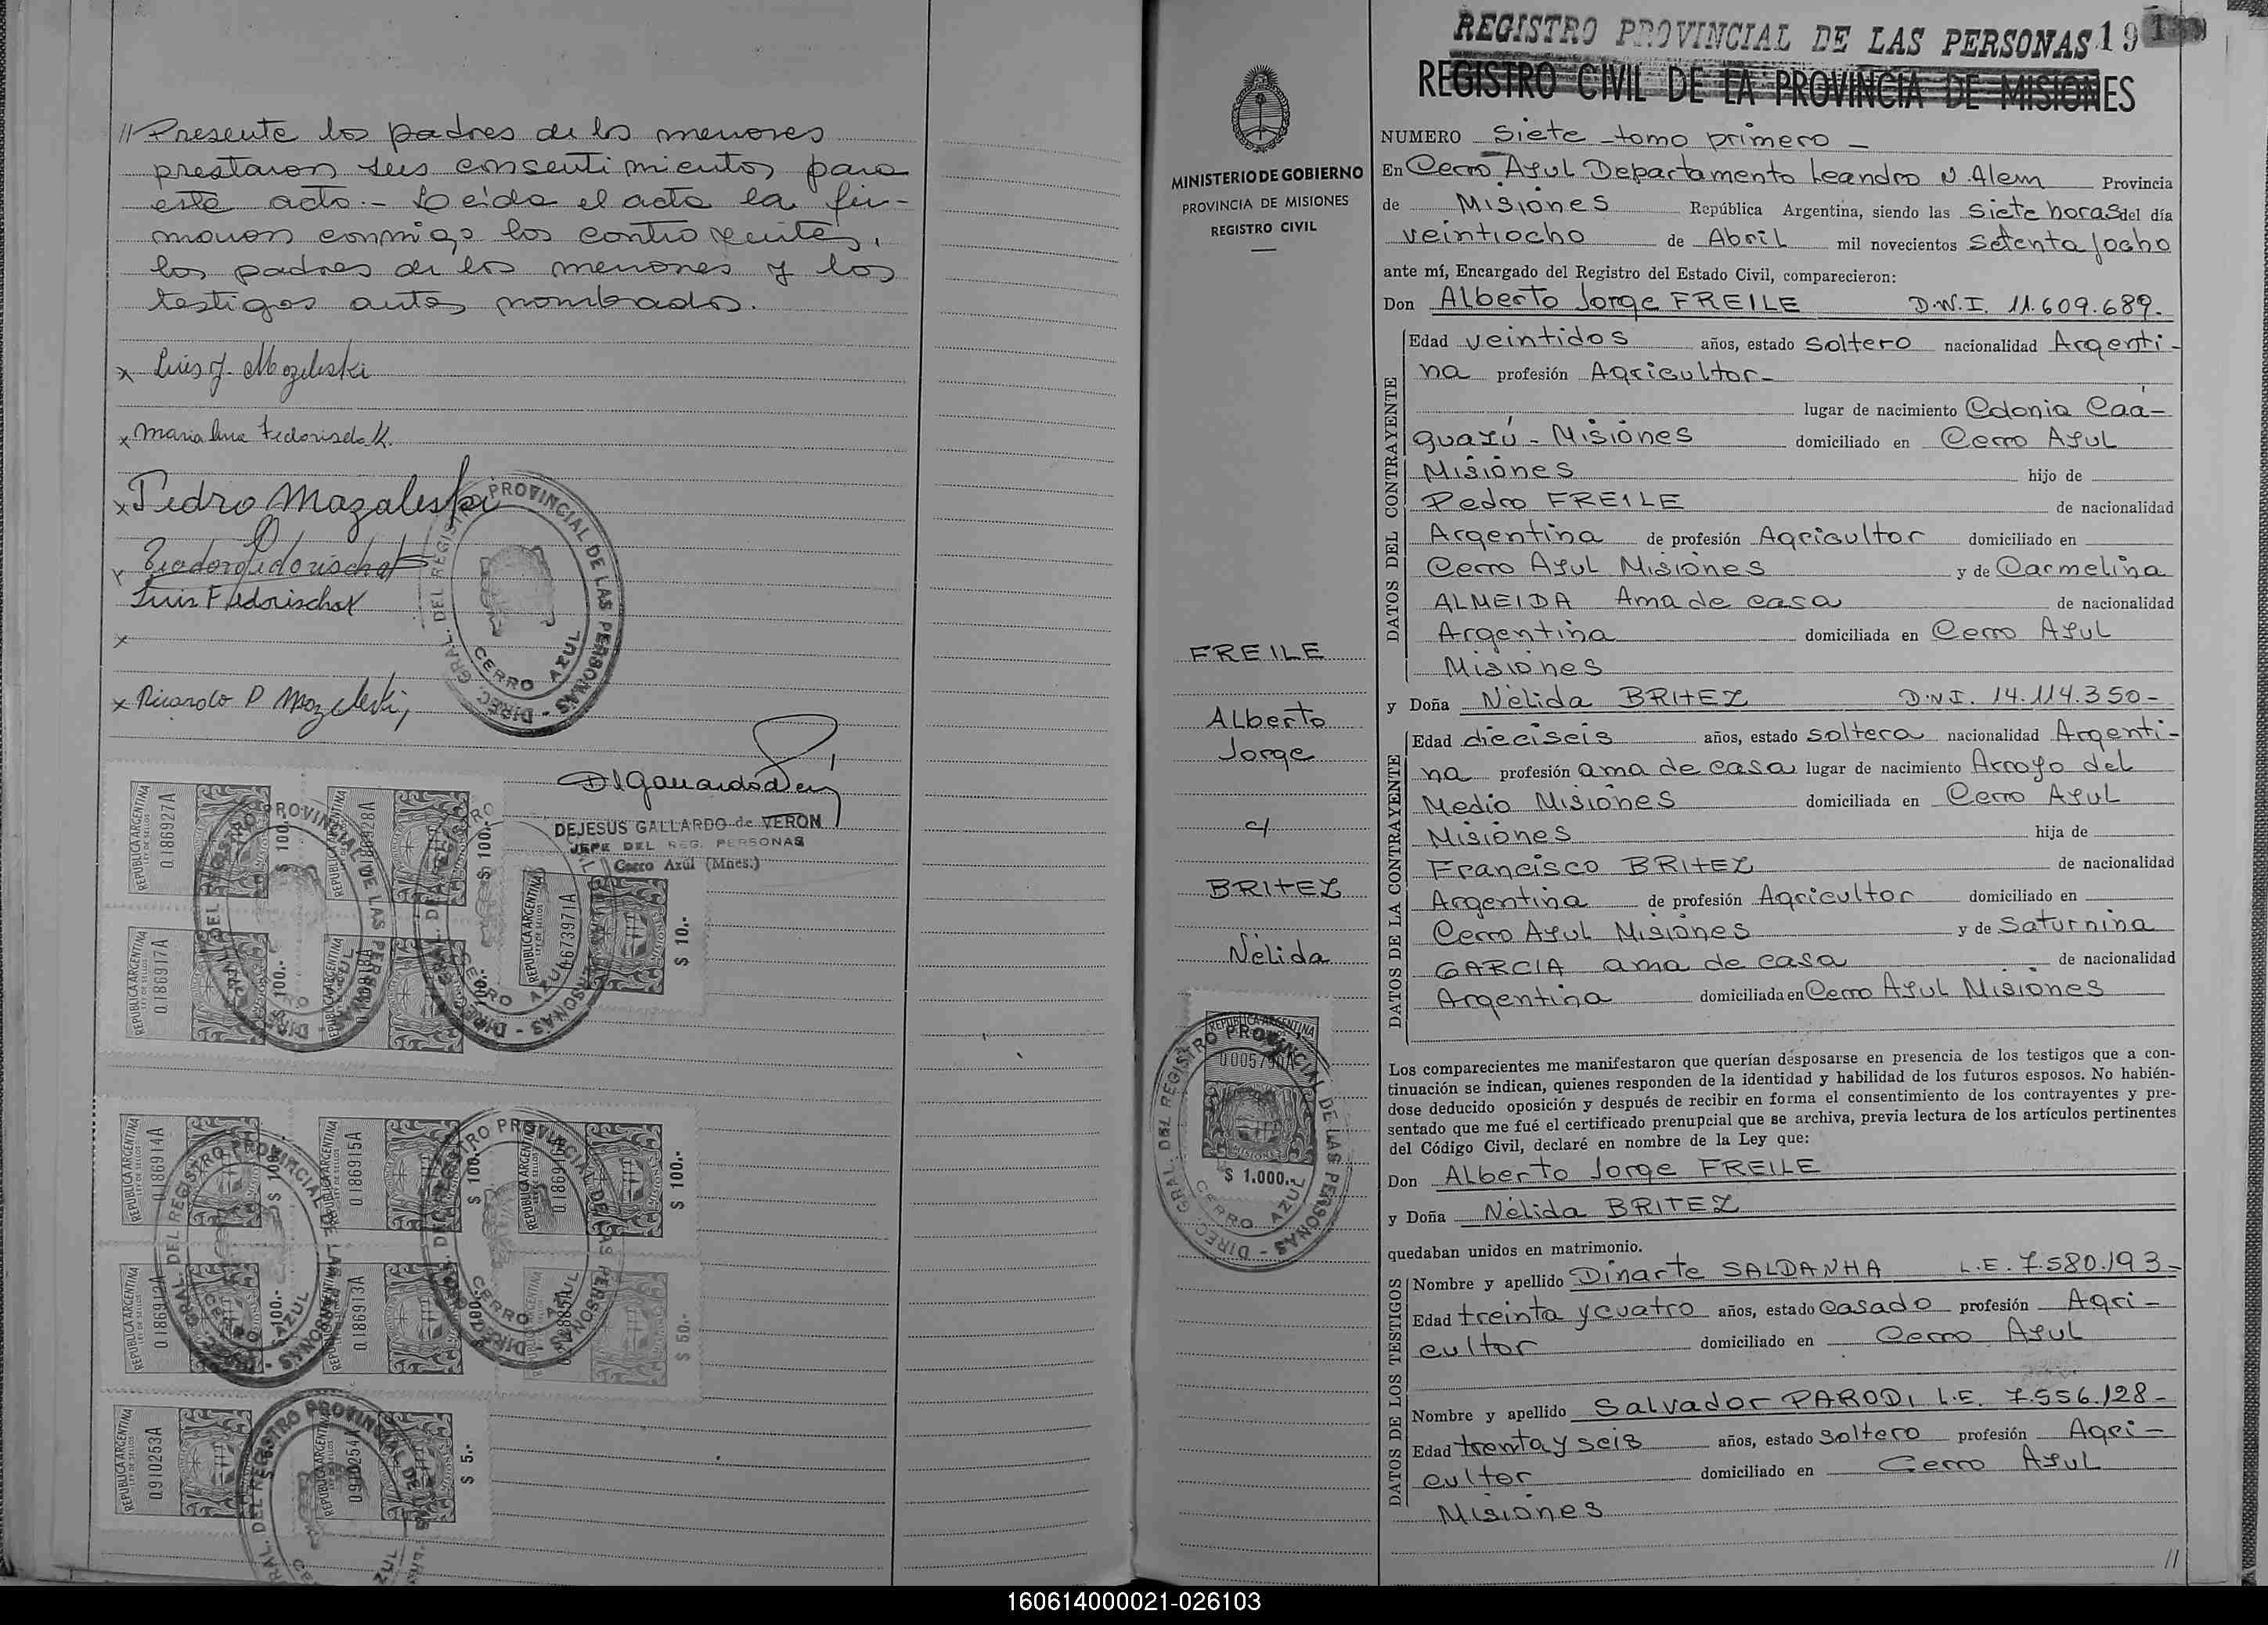 // Presente los padres de los menores
prestaron sus consentimientos para
este acto.- Leida el acta la fir-
maron conmigo los contrayentes,
los padres de los menores y los
testigos antes nombrados.
x Luis J. Mozeleski
x Maria Ana Fedorischak K.
x Pedro Mazaleski
x Teodoro Fedorischak
Luis Fedorischak
x
x Ricardo P Mozeleski,
DIREC. GRAL. DEL REGISTRO PROVINCIAL DE LAS PERSONAS -
CERRO AZUL
DEJESUS GALLARDO de VERON
JEFE DEL REG. PERSONAS
Cerro Azul (Mnes.)
REPUBLICA ARGENTINA
LEY DE SELLOS
0.186927A
$ 100.-
REPUBLICA ARGENTINA
0.186928A
$ 100.-
REPUBLICA ARGENTINA
1673971A
$ 10.-
REPUBLICA ARGENTINA
0.186917A
100.-
REPUBLICA ARGENTINA
0.186914A
$ 100.-
REPUBLICA ARGENTINA
0.186915A
$ 100.-
REPUBLICA ARGENTINA
$ 100.-
REPUBLICA ARGENTINA
100.-
REPUBLICA ARGENTINA
0.186913A
$ 100.-
$ 50.-
REPUBLICA ARGENTINA
LEY DE SELLOS
0.910253A
REPUBLICA ARGENTINA
0.910254A
$ 5.-
REGISTRO PROVINCIAL DE LAS PERSONAS 19
REGISTRO CIVIL DE LA PROVINCIA DE MISIONES
MINISTERIO DE GOBIERNO
PROVINCIA DE MISIONES
REGISTRO CIVIL
FREILE
Alberto
Jorge
c/
BRITEZ
Nélida
REPUBLICA ARGENTINA
$ 1.000.-
DIREC. GRAL. DEL REGISTRO PROVINCIAL DE LAS PERSONAS -
CERRO AZUL
NUMERO Siete - tomo primero -
En Cerro Azul Departamento Leandro N. Alem Provincia
de Misiones República Argentina, siendo las Siete horas del día
veintiocho de Abril mil novecientos setenta y ocho
ante mí, Encargado del Registro del Estado Civil, comparecieron:
Don Alberto Jorge FREILE D.N.I. 11.609.689.
DATOS DEL CONTRAYENTE
Edad veintidos años, estado soltero nacionalidad Argenti-
na profesión Agricultor-
lugar de nacimiento Colonia Caá-
guazú - Misiones domiciliado en Cerro Azul
Misiones hijo de
Pedro FREILE de nacionalidad
Argentina de profesión Agricultor domiciliado en
Cerro Azul Misiones y de Carmelina
ALMEIDA Ama de casa de nacionalidad
Argentina domiciliada en Cerro Azul
Misiones
y Doña Nélida BRITEZ D.N.I. 14.114.350-
DATOS DE LA CONTRAYENTE
Edad dieciseis años, estado soltera nacionalidad Argenti-
na profesión ama de casa lugar de nacimiento Arroyo del
Medio Misiones domiciliada en Cerro Azul
Misiones hija de
Francisco BRITEZ de nacionalidad
Argentina de profesión Agricultor domiciliado en
Cerro Azul Misiones y de Saturnina
GARCIA ama de casa de nacionalidad
Argentina domiciliada en Cerro Azul Misiones
Los comparecientes me manifestaron que querían desposarse en presencia de los testigos que a con-
tinuación se indican, quienes responden de la identidad y habilidad de los futuros esposos. No habién-
dose deducido oposición y después de recibir en forma el consentimiento de los contrayentes y pre-
sentado que me fué el certificado prenupcial que se archiva, previa lectura de los artículos pertinentes
del Código Civil, declaré en nombre de la Ley que:
Don Alberto Jorge FREILE
y Doña Nélida BRITEZ
quedaban unidos en matrimonio.
DATOS DE LOS TESTIGOS
Nombre y apellido Dinarte SALDANHA L.E. 7.580.193-
Edad treinta y cuatro años, estado casado profesión Agri-
cultor domiciliado en Cerro Azul
Nombre y apellido Salvador PARODI L.E. 7.556.128-
Edad trenta y seis años, estado soltero profesión Agri-
cultor domiciliado en Cerro Azul
Misiones
//
160614000021-026103